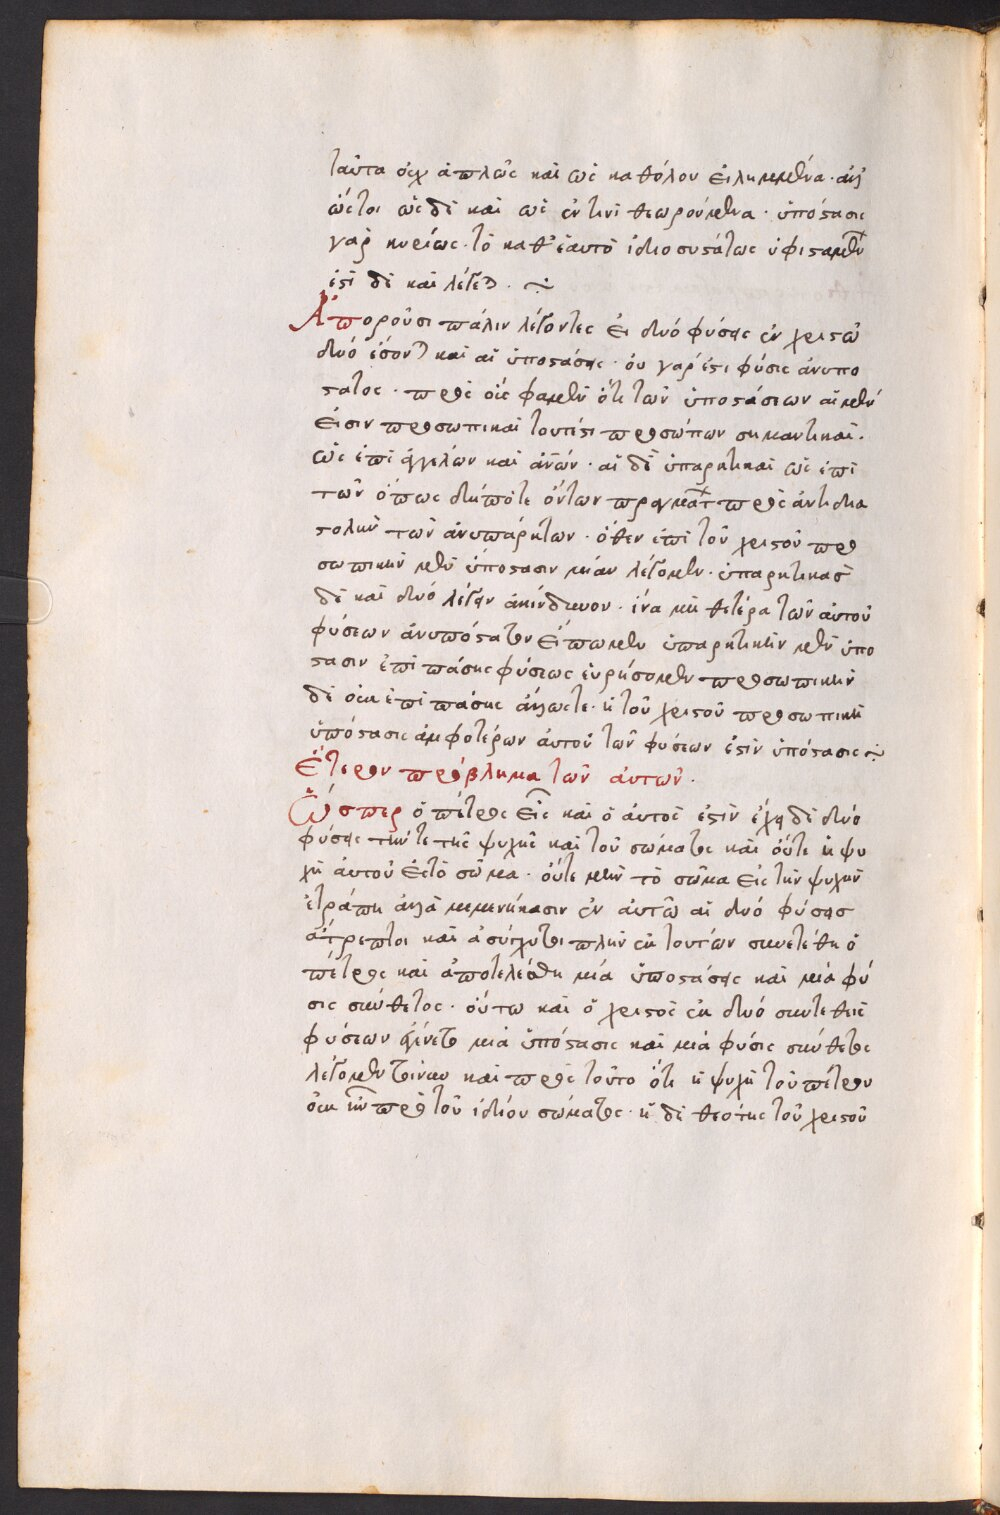 ταῦτα οὐχ ἁπλῶς καὶ ὡς καθόλου εἰλημμένα· ἀλλ'
ὡς τοι ὡς δὲ καὶ ὡς ἐν τινὶ θεωρούμενα· ὑπόστασις
γὰρ κυρίως· τὸ καθ' ἑαυτὸ ἰδιοσυστάτως ὑφιστάμενον
ἐστὶ δὲ καὶ λέγεται.
Ἀποροῦσι πάλιν λέγοντες εἰ δύο φύσεις ἐν χριστῶ
δυό ἔσονται καὶ αἱ ὑποστάσεις· οὐ γάρ ἐστι φύσις ἀνυπο
στατος· πρὸς οὕς φαμὲν ὅτι τῶν ὑποστάσεων αἱ μέν
εἰσιν προσωπικαὶ τουτέστι προσώπων σημαντικαί.
ὡς ἐπὶ ἀγγέλων καὶ ἀν̅ων̅· αἱ δὲ ὑπαρκτικαὶ ὡς ἐπὶ
τῶν ὁπως δήποτε ὄντων πραγμάτ πρὸς ἀντιδια
στολὴν τῶν ἀνυπάρκτων· ὅθεν ἐπὶ τοῦ χριστοῦ προ
σωπικὴν μὲν ὑπόστασιν μίαν λέγομεν· ὑπαρκτικὰς
δὲ καὶ δυό λέγειν ἀκίνδυνον· ἵνα μὴ θετέρα τῶν αὐτοῦ
φύσεων ἀνυπόστατον εἴπωμεν ὑπαρκτικὴν μὲν ὑπο
στασιν ἐπὶ πάσης φύσεως εὑρήσομεν προσωπικὴν
δὲ οὐκ ἐπὶ πάσης ἄλλωστε· ἡ τοῦ χριστοῦ προσωπικὴ
ὑπόστασις ἀμφοτέρων αὐτοῦ τῶν φύσεων ἐστὶν ὑπόστασις
Ἕτερον πρόβλημα τῶν αὐτῶν.
Ὥσπερ ὁ πέτρος εἷς καὶ ὁ αὐτός ἐστὶν ἔχει δὲ δυό
φύσεις τήν τε τῆς ψυχῆς καὶ τοῦ σώματος καὶ οὔτε ἡ ψυ
χὴ αὐτοῦ εἰς τὸ σῶμα· οὔτε μὴν τὸ σῶμα εἰς τὴν ψυχὴν
ἐτράπη ἀλλὰ μεμενήκασιν ἐν αὐτῶ αἱ δυό φύσεις
ἄτρεπτοι καὶ ἀσύγχυτοι πλὴν ἐκ τουτων συνετέθη ὁ
πέτρος καὶ ἀποτελέσθη μία ὑποστάσεις καὶ μιὰ φύ
σις σύνθετος· οὕτω καὶ ὁ χριστὸς ἐκ δυό συντεθεὶς
φύσεων γέγονε μιὰ ὑπόστασις καὶ μιὰ φύσις σύνθετος
λέγομεν τοίνυν καὶ πρὸς τοῦτο ὅτι ἡ ψυχὴ τοῦ πέτρου
οὐκ ἦν πρὸ τοῦ ἰδίου σώματος· ἡ δὲ θεότης τοῦ χριστοῦ